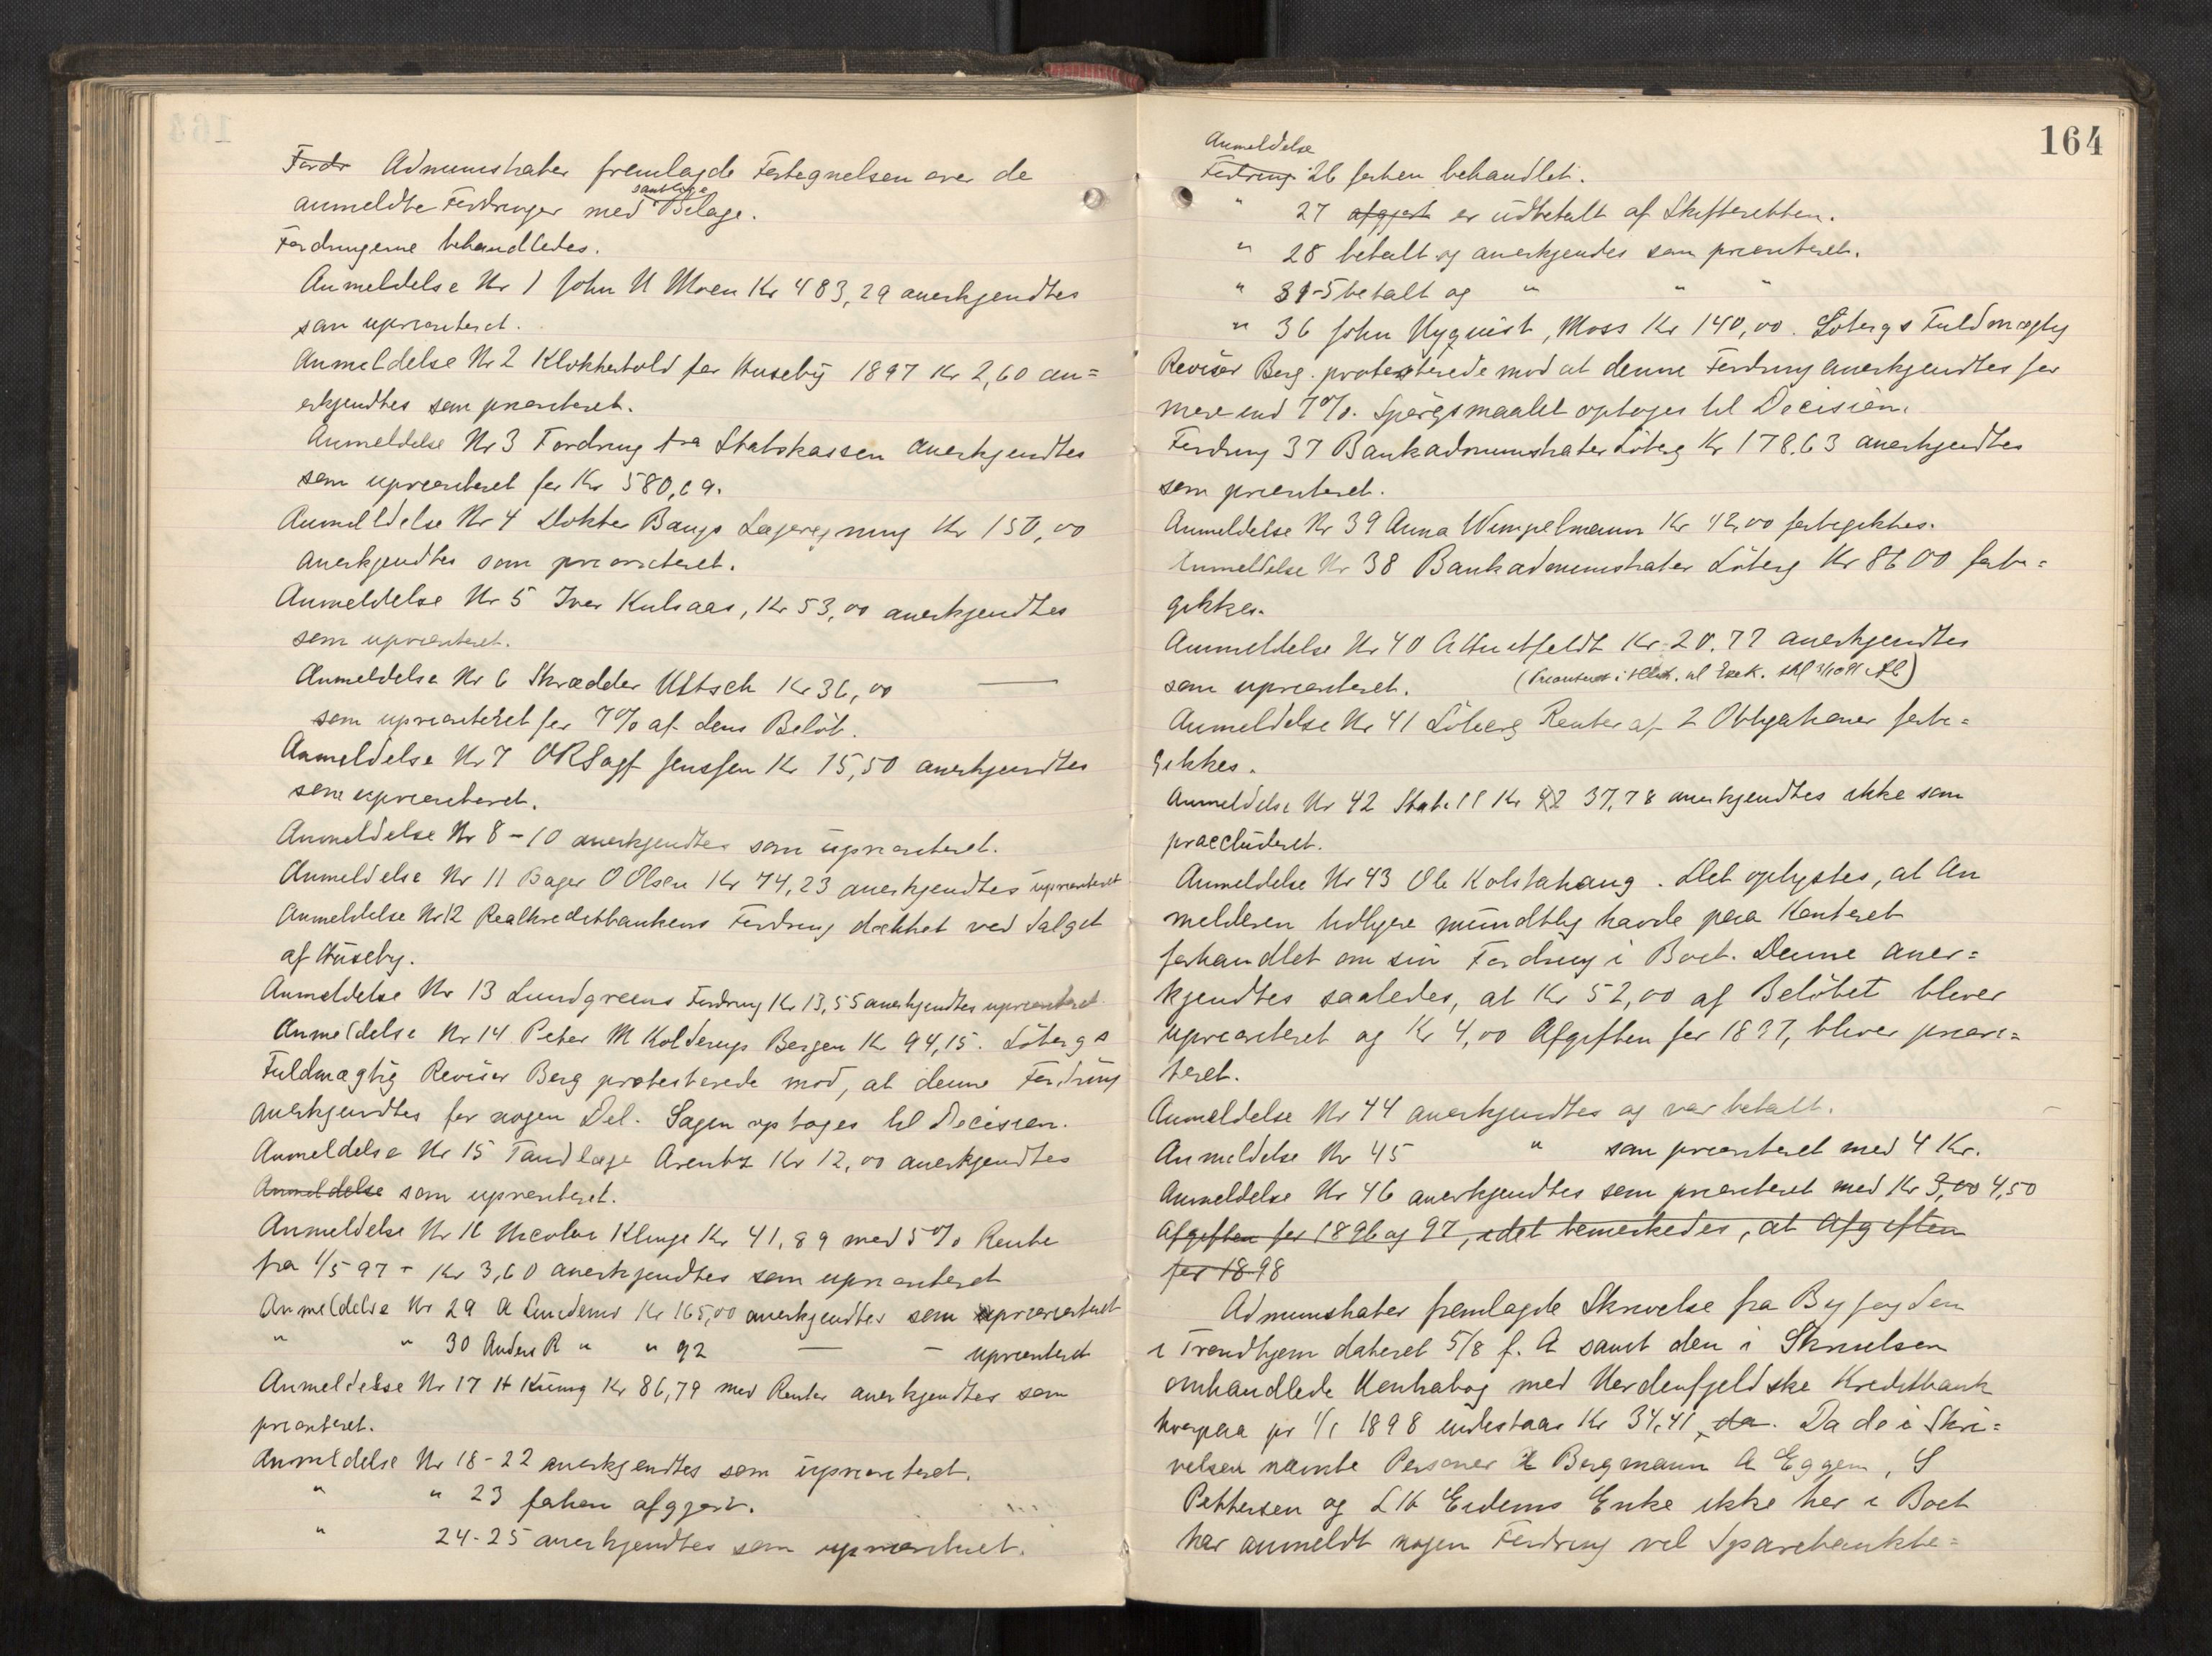 Fordr Administrator fremlagde Fortegnelsen over de
anmeldte Fordringer med samtlige Bilage.
Fordringerne behandledes.
Anmeldelse Nr 1 John N Moen Kr 483,29 anerkjendtes
som uprioriteret.
Anmeldelse Nr 2 Klokkertold for Huseby 1897 Kr 2,60 an=
erkjendtes som prioriteret.
Anmeldelse Nr 3 Fordring fra Statskassen anerkjendtes
som uprioriteret for Kr 580,69.
Anmeldelse Nr 4 Doktor Bangs Lægeregning Kr 150,00
anerkjendtes som prioriteret.
Anmeldelse Nr 5 Iver Kulsaas, Kr 53,00 anerkjendtes
som uprioriteret.
Anmeldelse Nr 6 Skrædder Ultsch Kr 36,00 —
som uprioriteret for 7% af dens Beløb.
Anmeldelse Nr 7 ORSagf Jenssen Kr 15,50 anerkjendtes
som uprioriteret.
Anmeldelse Nr 8-10 anerkjendtes som uprioriteret.
Anmeldelse Nr 11 Bager O Olsen Kr 74,23 anerkjendtes uprioriteret
Anmeldelse Nr 12 Realkreditbankens Fordring dækket ved Salget
af Huseby.
Anmeldelse Nr 13 Lundgreens Fordring Kr 13,55 anerkjendtes uprioriteret
Anmeldelse Nr 14 Peter M Kolderup Bergen Kr 94,15. Löbergs
Fuldmægtig Revisor Berg protesterede mod, at denne Fordring
anerkjendtes for nogen Del. Sagen optoges til Decision.
Anmeldelse Nr 15 Tandlæge Arentz Kr 12,00 anerkjendtes
Anmeldelse som uprioriteret.
Anmeldelse Nr 16 Nicolai Klinge Kr 41,89 med 5% Rente
fra 1/5 97 - Kr 3,60 anerkjendtes som uprioriteret
Anmeldelse Nr 29 A Lundems Kr 165,00 anerkjendtes som uprioriteret
" " 30 Anders R " " 92 — - uprioriteret
Anmeldelse Nr 17 H Küng Kr 86,79 med Renter anerkjendtes som
prioriteret.
Anmeldelse Nr 18-22 anerkjendtes som uprioriteret.
" " 23 forhen afgjort.
" 24-25 anerkjendtes som uprioriteret.
164
Anmeldelse
Fordring 26 forhen behandlet.
" 27 afgjort er udbetalt af Skifteretten.
" 28 betalt og anerkjendes som prioriteret.
" 31-5 betalt og " " "
" 36 John Nyquist, Moss Kr 140,00. Löbergs Fuldmægtig
Revisor Berg protesterede mod at denne Fordring anerkjendtes for
mere end 7%. Spørgsmaalet optoges til Decision.
Fordring 37 Bankadministrator Löberg Kr 178.63 anerkjendtes
som prioriteret.
Anmeldelse Nr 39 Anna Wimpelmann Kr 42,00 forbigikkes.
Anmeldelse Nr 38 Bankadministrator Löberg Kr 8600 forbi=
gikkes.
Anmeldelse Nr 40 A Huitfeldt Kr 20.77 anerkjendtes
som uprioriteret. (Prioriteret i
Anmeldelse Nr 41 Löberg Renter af 2 Obligationer forbi=
gikkes.
Anmeldelse Nr 42 Kr 42 37,78 anerkjendtes ikke som
praecluderet.
Anmeldelse Nr 43 Ole Kolstahaug. Det oplystes, at An
melderen tidligere mundtlig havde paa Kontoret
forhandlet om sin Fordring i Boet. Denne aner=
kjendtes saaledes, at Kr 52,00 af Beløbet bliver
uprioriteret og Kr 4,00 Afgiften for 1897, bliver priori=
teret.
Anmeldelse Nr 44 anerkjendtes og var betalt.
Anmeldelse Nr 45 " som prioriteret med 4 Kr.
Anmeldelse Nr 46 anerkjendtes som prioriteret med Kr 3,00 4,50
Afgiften for 1896 og 97, idet bemerkedes, at Afgiften
for 1898
Administrator fremlagde Skrivelse fra Byfogden
i Trondhjem dateret 5/8 f. A samt den i Skrivelsen
omhandlede Kontrabog med Nordenfjeldske Kreditbank
hvorpaa pr 1/1 1898 indestaar Kr 34,41, da. Da de i Skri=
velsen nævnte Personer Bergmann A Eggen, S
Pettersen og L K Eidems Enke ikke her i Boet
har anmeldt nogen Fordring vil Sparebankbe=